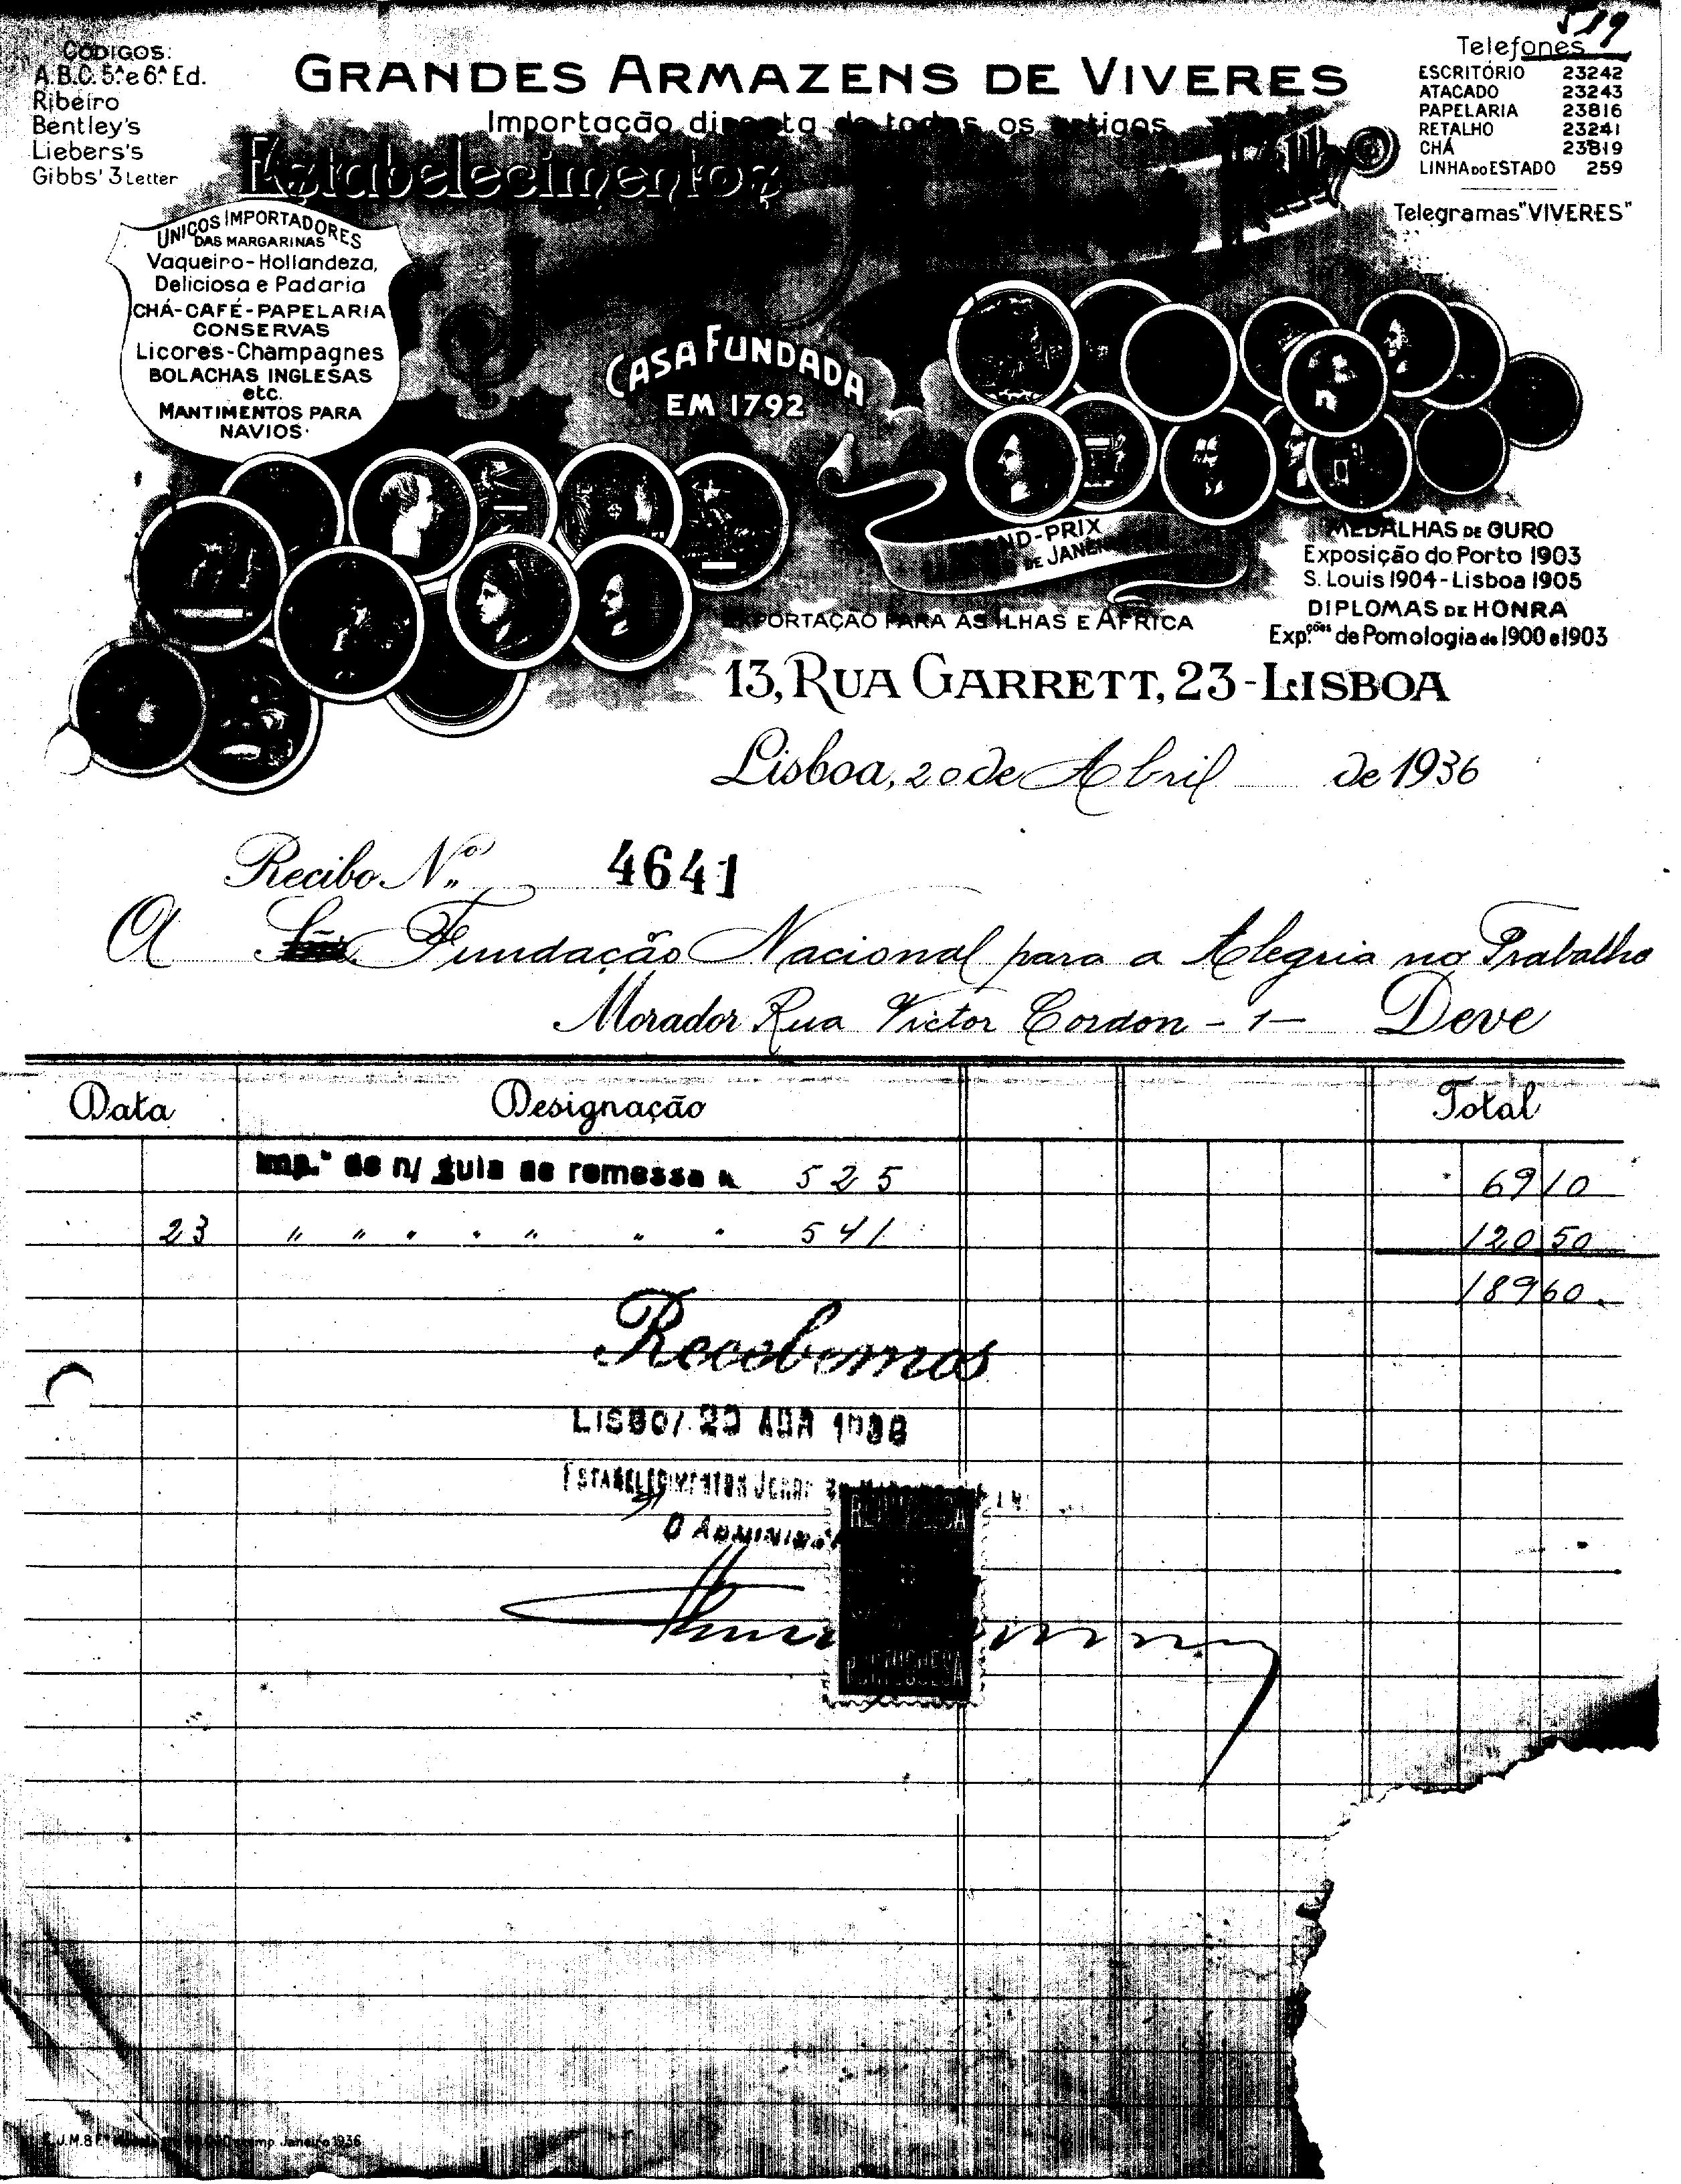 519
CÓDIGOS:
A.B.C. 5ª e 6ª Ed.
Ribeiro
Bentley's
Liebers's
Gibbs' 3 Letter
GRANDES ARMAZENS DE VIVERES
Importação directa de todos os artigos
Estabelecimentos
Telefones
ESCRITÓRIO 23242
ATACADO 23243
PAPELARIA 23816
RETALHO 23241
CHÁ 23819
LINHA DO ESTADO 259
Telegramas "VIVERES"
UNICOS IMPORTADORES
DAS MARGARINAS
Vaqueiro-Hollandeza,
Deliciosa e Padaria
CHÁ-CAFÉ-PAPELARIA
CONSERVAS
Licores-Champagnes
BOLACHAS INGLESAS
etc.
MANTIMENTOS PARA
NAVIOS.
CASA FUNDADA
EM 1792
ND-PRIX
DE JANEI
MEDALHAS DE OURO
Exposição do Porto 1903
S. Louis 1904-Lisboa 1905
DIPLOMAS DE HONRA
Exp.ções de Pomologia de 1900 e 1903
EXPORTAÇÃO PARA AS ILHAS E AFRICA
13, RUA GARRETT, 23-LISBOA
Lisboa, 20 de Abril de 1936
Recibo Nº 4641
A Fundação Nacional para a Alegria no Trabalho
Morador Rua Victor Cordon - 1 - Deve
Data Designação Total
Imp.ª de n/ guia de remessa 525 69 10
23 " " " " " " " 541 120 50
189 60
Recebemos
LISBOA 1936
ESTABELECIMENTOS
O ADMINIS
PORTUGUESA
Janeiro 1936